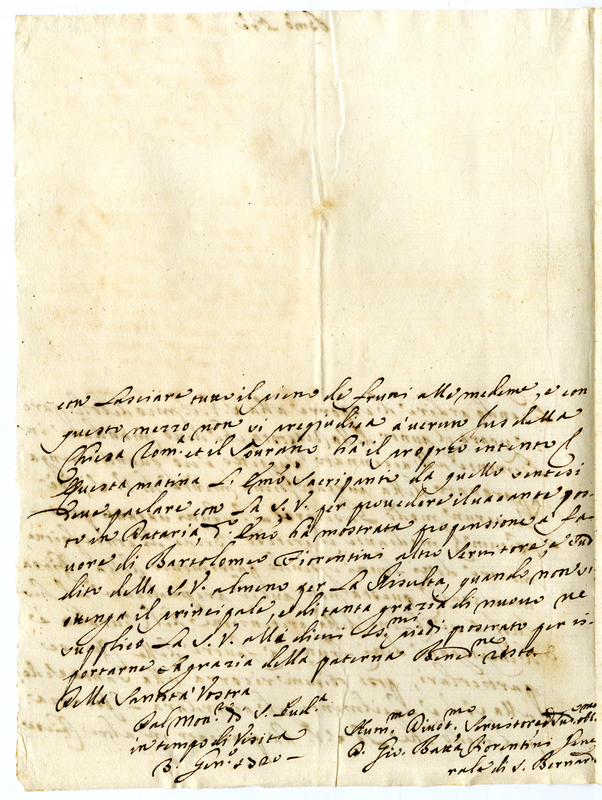 con lasciare tutto il pieno de frutti alle medeme, e con
questo mezzo non vi pregiudica à verun Ius della
Chiesa Rom.a et il Sovrano ha il proprio intento.
Questa matina l'Em.o Sacripanti da quello sentesi
deve parlare con La S. V. per provedere il vacante pos-
to in Dataria, d.o Em.o ha mostrata propensione a fa-
vore di Bartolomeo Fiorentini altro servitore, e sud
dito della S. V. almeno per La Risulta, quando non ot
tenga il principale, e di tanta grazia di nuovo ne
supplico La S. V. alli di Lei SS.mi piedi prostrato per ri-
portarne la grazia della paterna Bened.ne resto.
Della Santità Vostra
Dal Mon.ro di S. Lud.a
in tempo di Visita
3. Gen.o 1720
Hum.mo Divot.mo Servitore e Sud.o obl.mo
D. Gio. Batta Fiorentini Gene
rale di S. Bernard